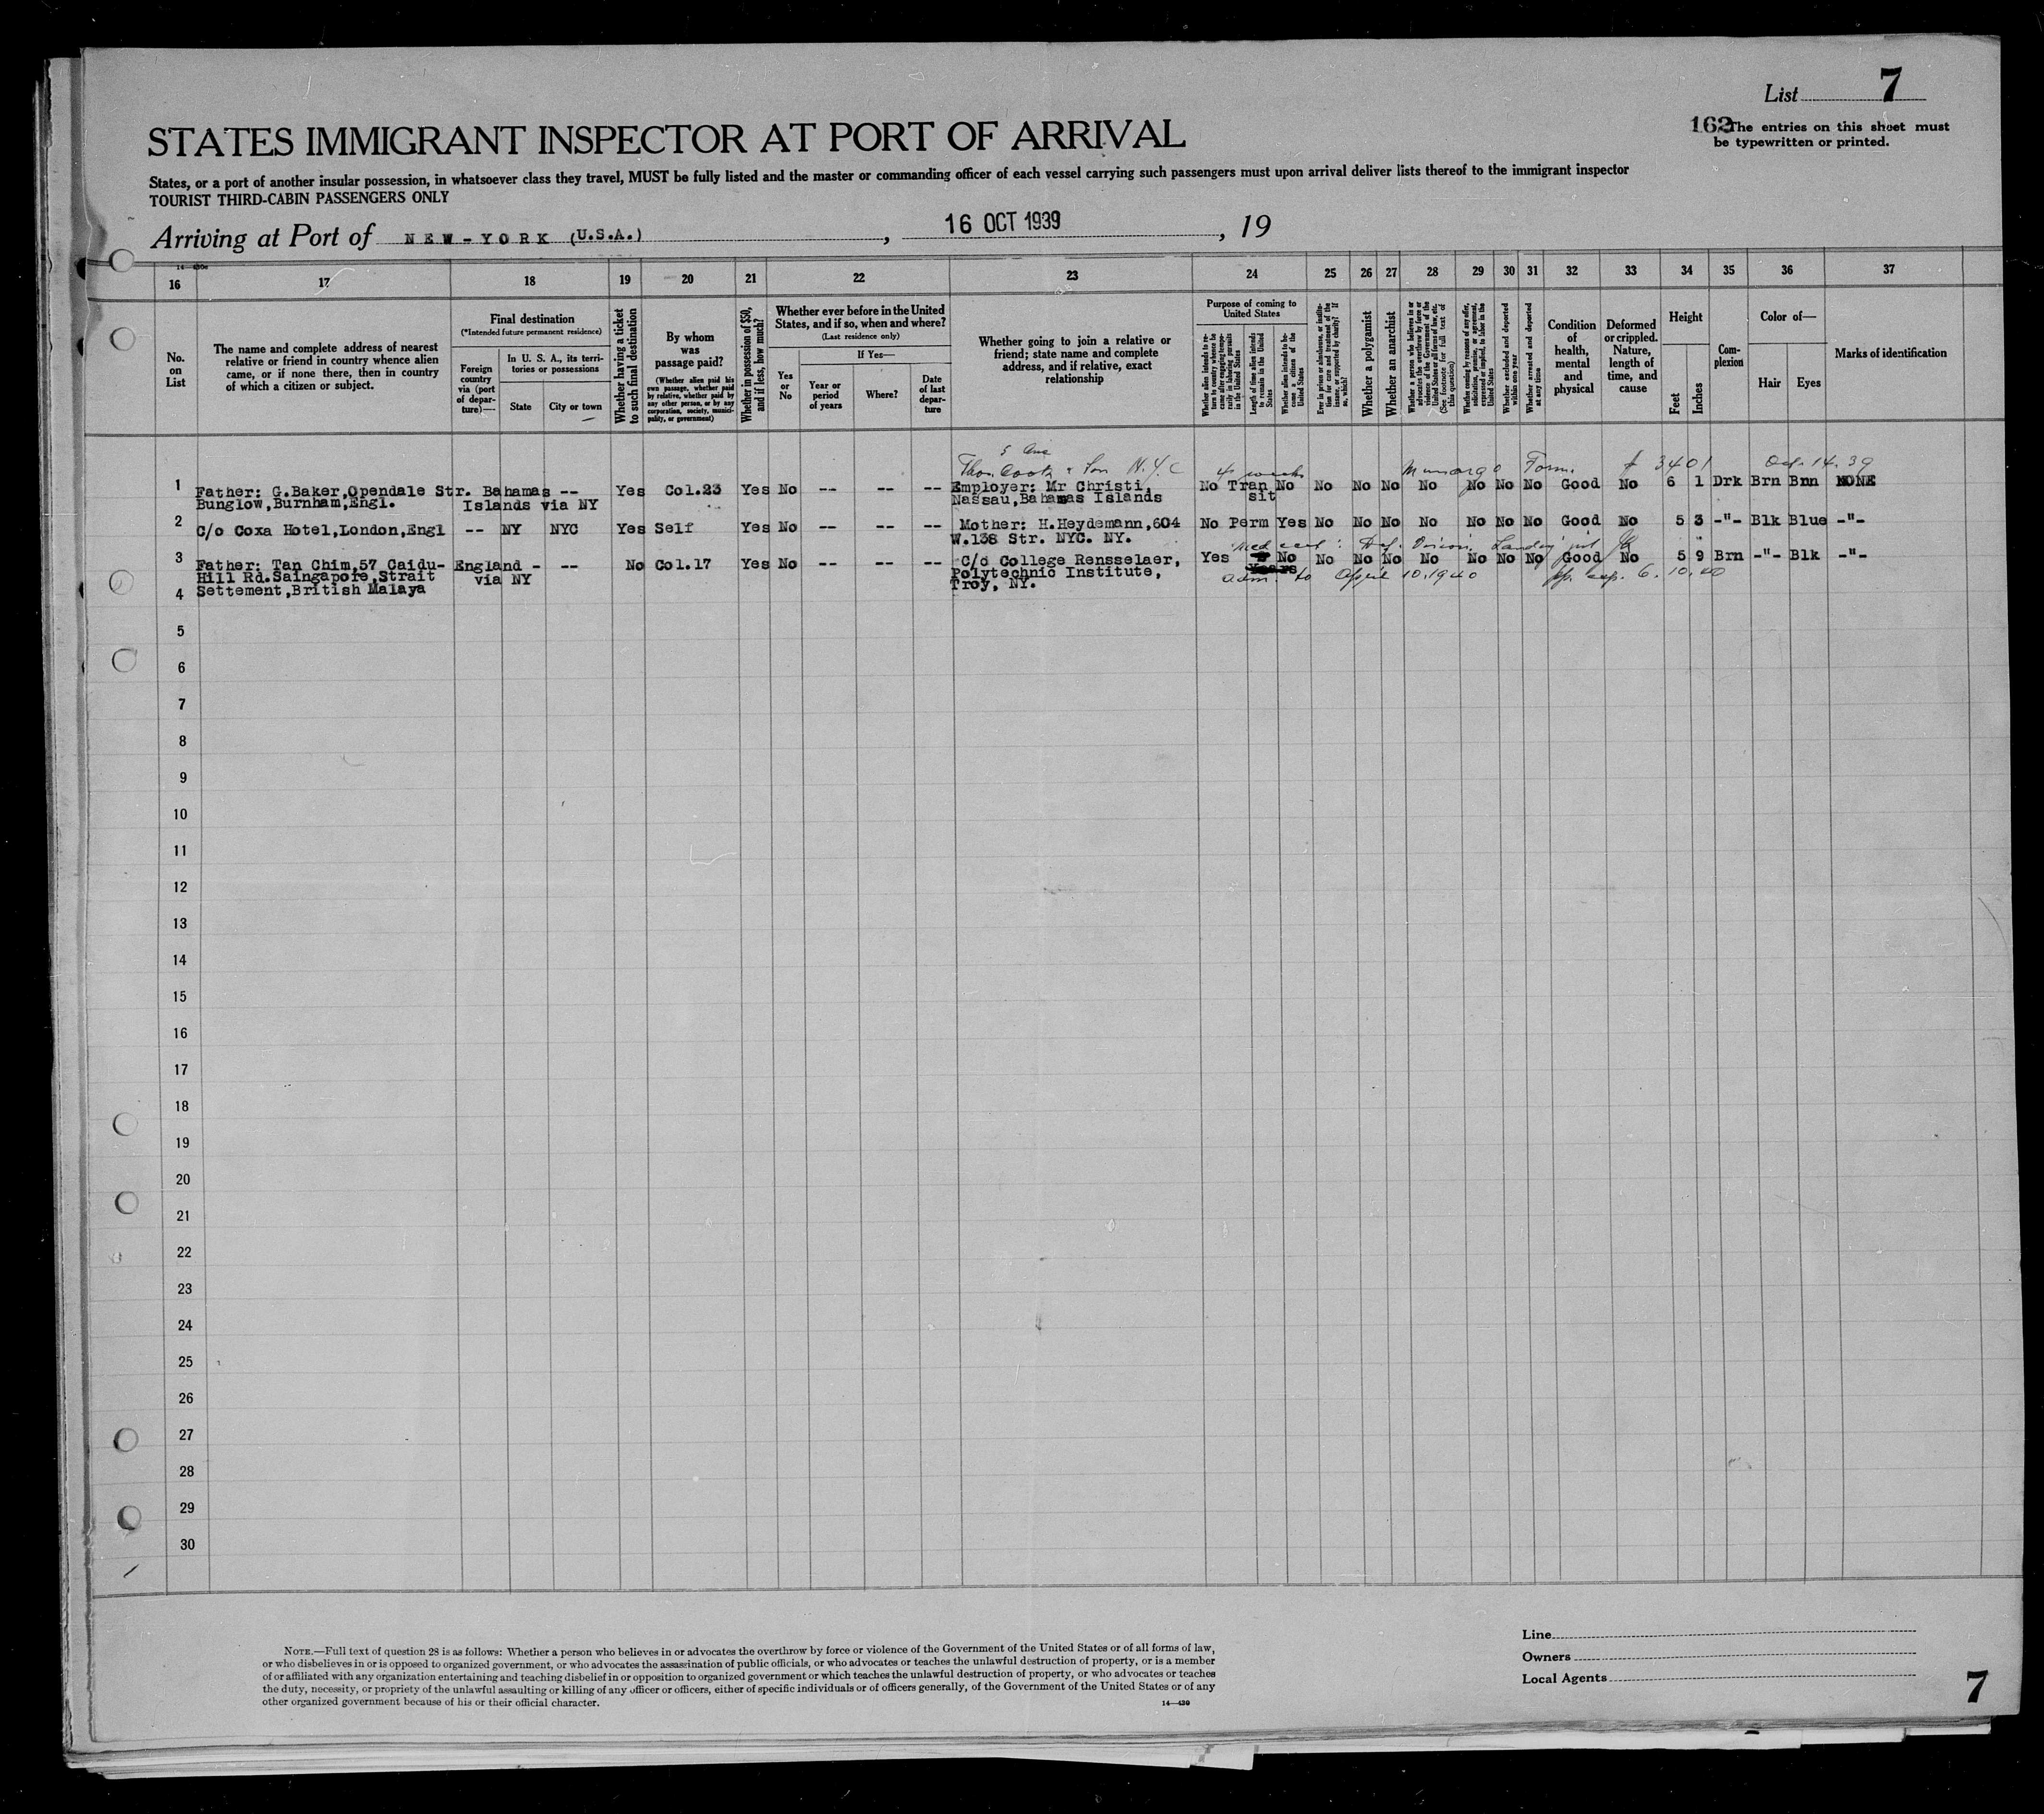 List 7
162 The entries on this sheet must
be typewritten or printed.
STATES IMMIGRANT INSPECTOR AT PORT OF ARRIVAL
States, or a port of another insular possession, in whatsoever class they travel, MUST be fully listed and the master or commanding officer of each vessel carrying such passengers must upon arrival deliver lists thereof to the immigrant inspector
TOURIST THIRD-CABIN PASSENGERS ONLY
Arriving at Port of NEW-YORK (U.S.A.), 16 OCT 1939, 19
16 17 18 19 20 21 22 23 24 25 26 27 28 29 30 31 32 33 34 35 36 37
No. on List
The name and complete address of nearest
relative or friend in country whence alien
came, or if none there, then in country
of which a citizen or subject.
Final destination
(*Intended future permanent residence)
Foreign country via (port of departure)—
In U. S. A., its territories or possessions
State
City or town
Whether having a ticket to such final destination
By whom was passage paid?
(Whether alien paid his own passage, whether paid by relative, whether paid by any other person, or by any corporation, society, municipality, or government)
Whether in possession of $50, and if less, how much?
Whether ever before in the United
States, and if so, when and where?
(Last residence only)
Yes or No
If Yes—
Year or period of years
Where?
Date of last departure
Whether going to join a relative or
friend; state name and complete
address, and if relative, exact
relationship
Purpose of coming to
United States
Whether alien intends to return to country whence he came after engaging temporarily in laboring pursuits in the United States
Length of time alien intends to remain in the United States
Whether alien intends to become a citizen of the United States
Ever in prison or almshouse, or institution for care and treatment of the insane, or supported by charity? If so, which?
Whether a polygamist
Whether an anarchist
Whether a person who believes in or advocates the overthrow by force or violence of the Government of the United States or all forms of law, etc. (See footnote for full text of this question)
Whether coming by reasons of any offer, solicitation, promise, or agreement, expressed or implied, to labor in the United States
Whether excluded and deported within one year
Whether arrested and deported at any time
Condition of health, mental and physical
Deformed or crippled. Nature, length of time, and cause
Height
Feet
Inches
Complexion
Color of—
Hair
Eyes
Marks of identification
5 Ave
Thos. Cook & Son N.Y.C 4 weeks Munargo Form. 3401 Oct. 14. 39
1 Father: G.Baker,Opendale Str. Bahamas -- Yes Col.23 Yes No -- -- -- Employer: Mr Christi, No Tran No No No No No No No No Good No 6 1 Drk Brn Bnn NONE
Bunglow,Burnham,Engl. Islands via NY Nassau,Bahamas Islands sit
2 C/o Coxa Hotel,London,Engl -- NY NYC Yes Self Yes No -- -- -- Mother: H.Heydemann,604 No Perm Yes No No No No No No No Good No 5 3 -"- Blk Blue -"-
W.138 Str. NYC. NY.
3 Father: Tan Chim,57 Caidu- England - -- No Col.17 Yes No -- -- -- C/o College Rensselaer, Yes No No No No No No No No Good No 5 9 Brn -"- Blk -"-
Hill Rd.Saingapore,Strait via NY Polytechnic Institute, Years adm. to April 10.1940 6.10.40
4 Settement,British Malaya Troy, NY.
5
6
7
8
9
10
11
12
13
14
15
16
17
18
19
20
21
22
23
24
25
26
27
28
29
30
NOTE.—Full text of question 28 is as follows: Whether a person who believes in or advocates the overthrow by force or violence of the Government of the United States or of all forms of law,
or who disbelieves in or is opposed to organized government, or who advocates the assassination of public officials, or who advocates or teaches the unlawful destruction of property, or is a member
of or affiliated with any organization entertaining and teaching disbelief in or opposition to organized government or which teaches the unlawful destruction of property, or who advocates or teaches
the duty, necessity, or propriety of the unlawful assaulting or killing of any officer or officers, either of specific individuals or of officers generally, of the Government of the United States or of any
other organized government because of his or their official character.
14—430
Line
Owners
Local Agents
7